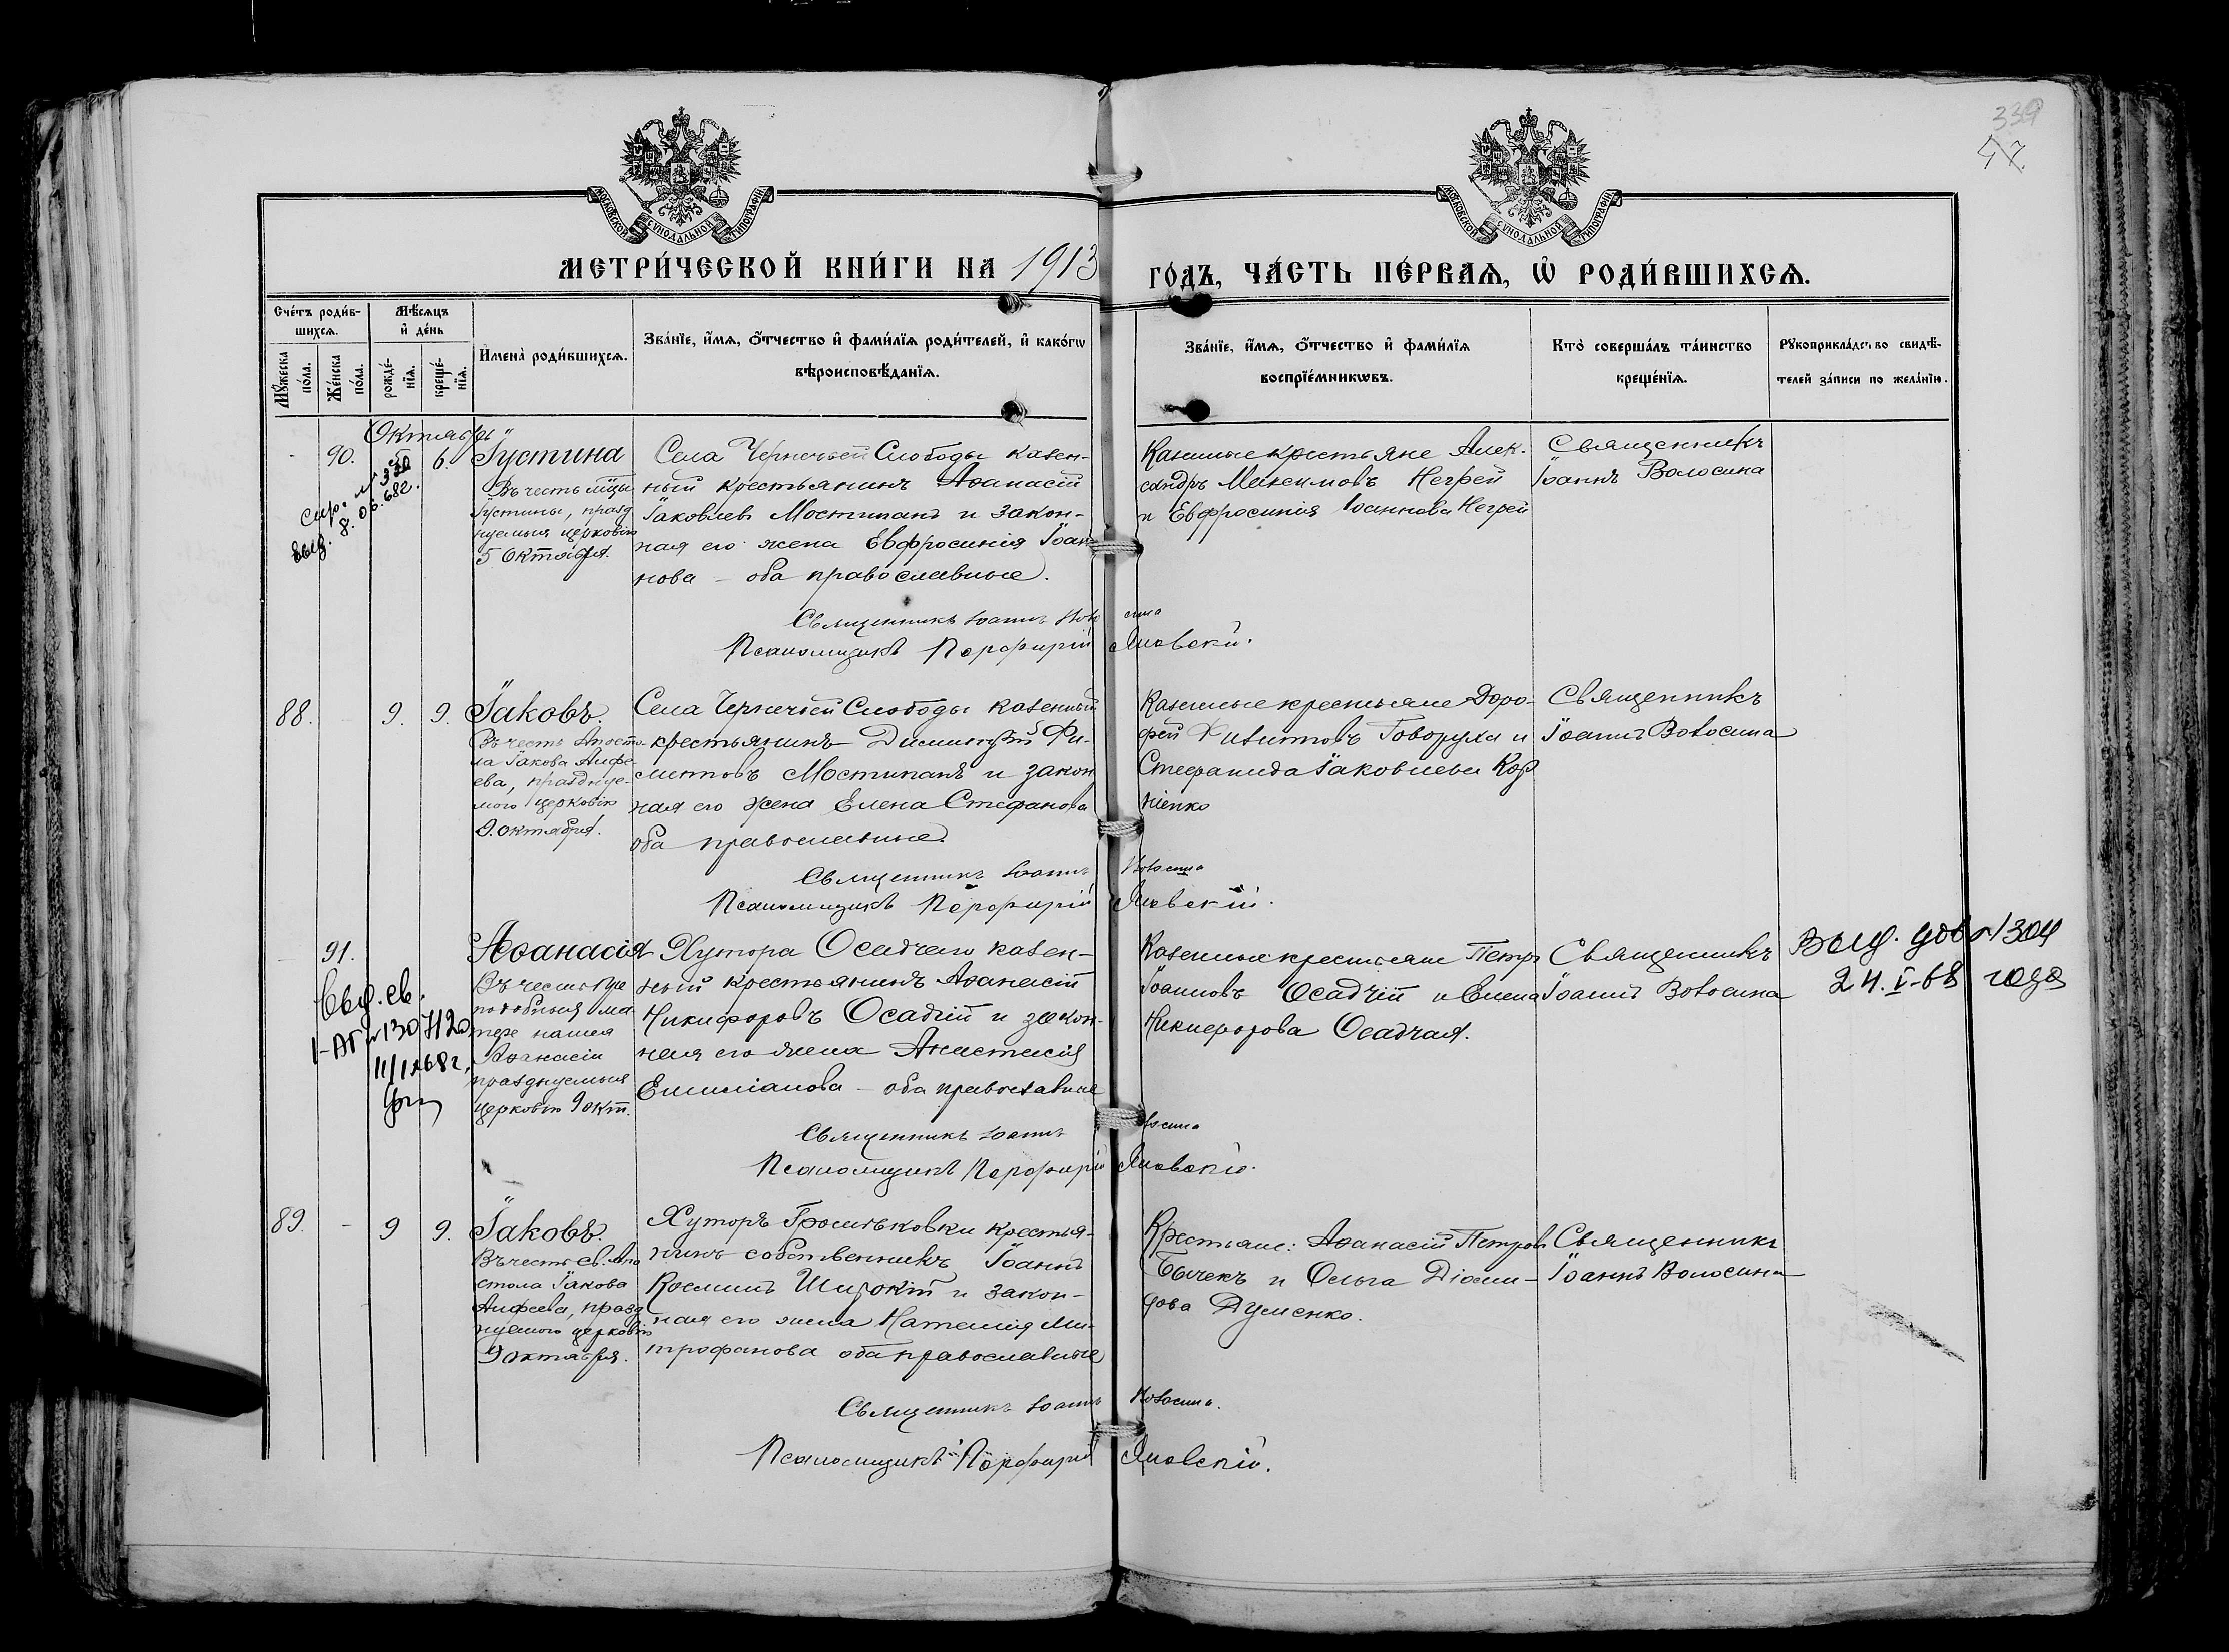 339
47
МОСКОВСКОЙ СѴНОДАЛЬНОЙ ТИПОГРАФІИ
МОСКОВСКОЙ СѴНОДАЛЬНОЙ ТИПОГРАФІИ
МЕТРИ́ЧЕСКОЙ КНИ́ГИ НА 1913 ГО́ДЪ, ЧА́СТЬ ПЕ́РВАѦ, Ѡ҆ РОДИ́ВШИХСѦ.
Сче́тъ роди́в-
шихсѧ.
Мꙋ́жеска по́ла.
Же́нска по́ла.
Мѣ́сѧцъ и҆ де́нь
рожде́-нїѧ.
креще́-нїѧ.
И҆мена̀ роди́вшихсѧ.
Зва́нїе, и҆́мѧ, ѻ҆́тчество и҆ фами́лїѧ роди́телей, и҆ како́гѡ
вѣроисповѣ́данїѧ.
Зва́нїе, и҆́мѧ, ѻ҆́тчество и҆ фами́лїѧ
воспрїе́мникѡвъ.
Кто̀ соверша́лъ та́инство
креще́нїѧ.
Рꙋкоприкла́дство свидѣ́-
телей за́писи по жела́нїю.
Октябрь
- 90. 5 6.
Іустина
Въ честь мцы
Іустины, празд
нуемыя церковію
5 Октября.
Села Чернечьей Слободы казен-
ный крестьянинъ Аѳанасій
Іаковлевъ Мостипанъ и закон-
ная его жена Евфросинія Іоан-
нова - оба православные.
Казенные крестьяне Алек-
сандръ Максимовъ Негрей
и Евфросинія Іоаннова Негрей
Священникъ
Іоаннъ Волосина
Священникъ Іоаннъ Волосина
Псаломщикъ Порфирій Яновскій.
88. - 9. 9.
Іаковъ.
Въ честь Апосто-
ла Іакова Алфе-
ева, праздnуе-
мого церковію
9. октября.
Села Чернечьей Слободы казенный
крестьянинъ Димитрій Фи-
липповъ Мостипанъ и закон
ная его жена Елена Стефанова
оба православные.
Казенные крестьяне Доро-
фей Филипповъ Говоруха и
Стефанида Іаковлева Кор
ніенко
Священникъ
Іоаннъ Волосина
Священникъ Іоаннъ Волосина
Псаломщикъ Порфирій Яновскій.
- 91.
Аѳанасія
Въ честь пре
подобныя ма
тере нашея
Аѳанасіи
празднуемыя
церковію 9 окт.
Хутора Осадчаго казен-
ный крестьянинъ Аѳанасій
Никифоровъ Осадчій и закон-
ная его жена Анастасія
Емиліанова - оба православные
Казенные крестьяне Петръ
Іоанновъ Осадчій и Елена
Никифорова Осадчая.
Священникъ
Іоаннъ Волосина
Выд.
24. V-68 года
Священникъ Іоаннъ Волосина
Псаломщикъ Порфирій Яновскій.
89. - 9 9.
Іаковъ.
Въ честь Св. Апо
стола Іакова
Алфеева, празд
нуемого церковію
9 октября.
Хуторъ крестья-
нинъ собственникъ Іоаннъ
Косминъ Широкій и закон-
ная его жена Наталія Ми-
трофанова оба православные
Крестьяне: Аѳанасій Петровъ
Бычекъ и Ольга Діоми-
дова Думенко.
Священникъ
Іоаннъ Волосина
Священникъ Іоаннъ Волосина.
Псаломщикъ Порфирій Яновскій.